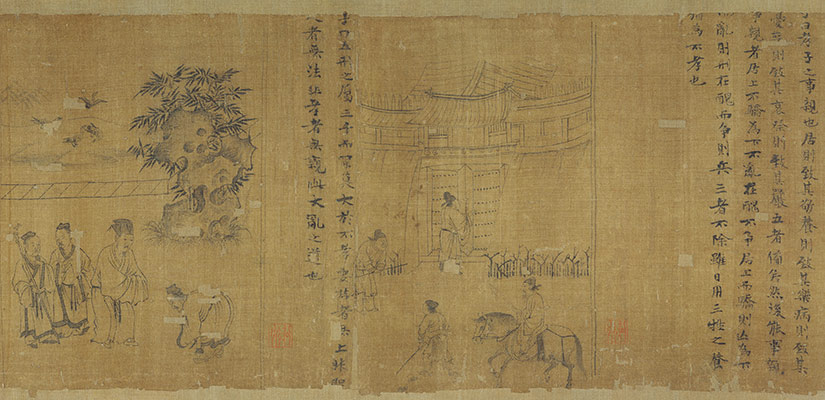 子曰孝子之事親也居則致其敬養則致其樂病則致其
憂喪則致其哀祭則致其嚴五者備矣然後能事親
事親者居上不驕為下不亂在醜不爭居上而驕則亡為下
亂則刑在醜而爭則兵三者不除雖日用三牲之養
猶為不孝也
子曰五刑之屬三千而罪莫大於不孝要君者無上非聖
人者無法非孝者無親此大亂之道也